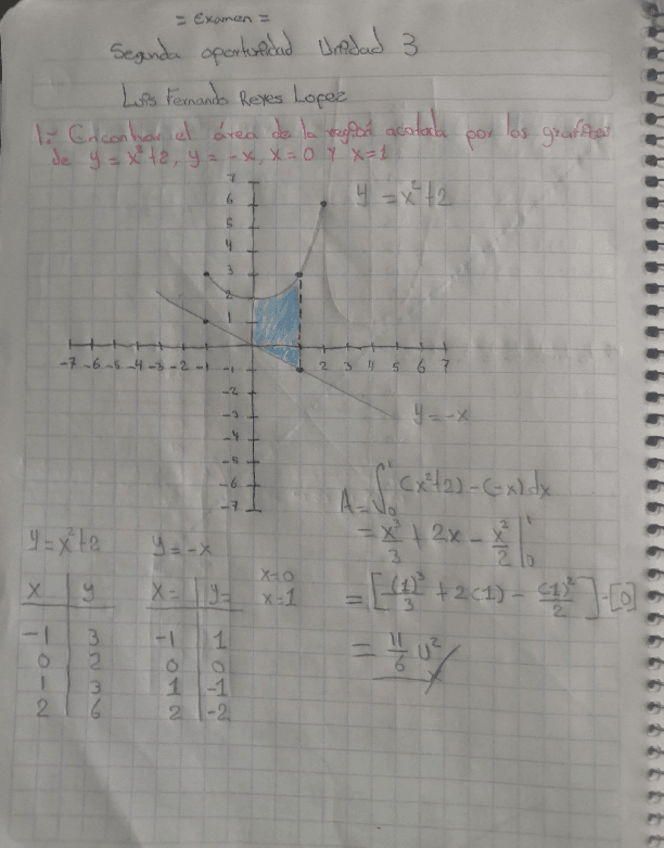 = Examen =
Segunda oportunidad Unidad 3
Luis Fernando Reyes Lopez
1.- Encontrar el área de la región acotada por las graficas
de y = x²+2, y = -x, x=0 y x=1
7
6
5
4
3
2
1
y = x²+2
-7 -6 -5 -4 -3 -2 -1 2 3 4 5 6 7
-1
-2
-3
-4
-5
-6
-7
y = -x
A = ∫₀¹ (x²+2) - (-x) dx
= x³/3 + 2x - x²/2 |₀¹
= [(1)³/3 + 2(1) - (1)²/2] - [0]
= 11/6 u²
y = x²+2 y = -x
x y x= y= x=0
x=1
-1 3 -1 1
0 2 0 0
1 3 1 -1
2 6 2 -2